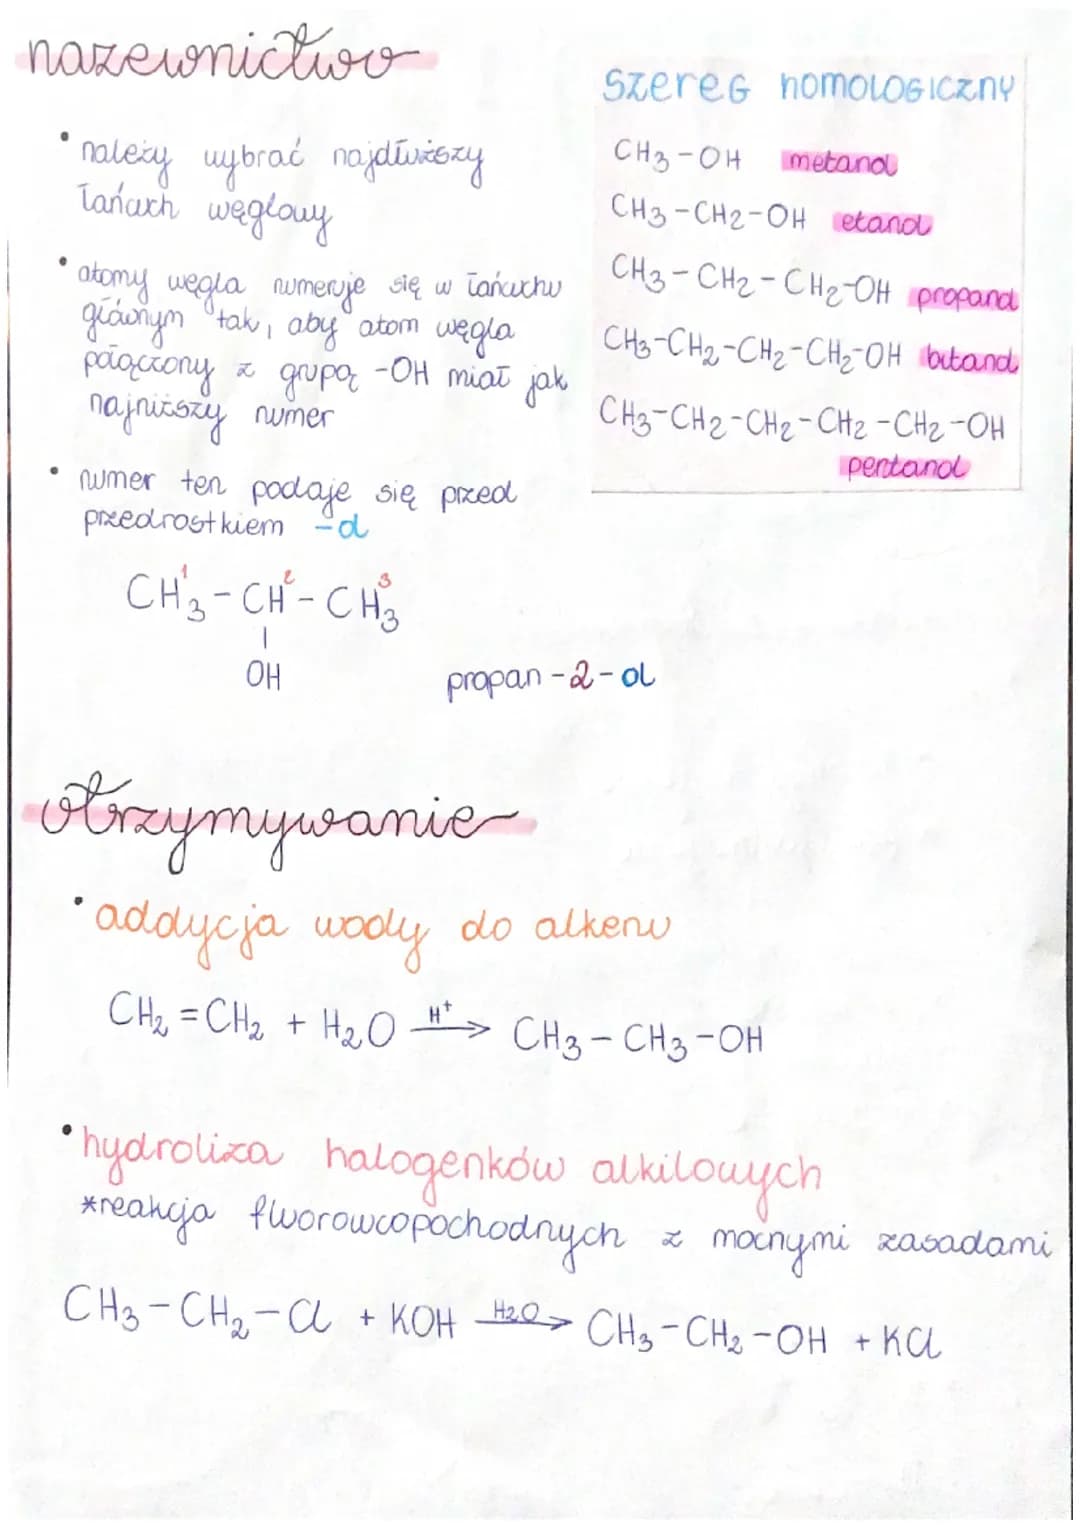 nazewnictwo
• należy wybrać najdłuższy
łańcuch węglowy
• atomy węgla numeruje się w łańcuchu
głównym tak, aby atom węgla
połączony z grupą -OH miał jak
najniższy numer
• numer ten podaje się przed
przedrostkiem -ol
1 2 3
CH3-CH-CH3
|
OH
propan-2-ol
Szereg homologiczny
CH3-OH metanol
CH3-CH2-OH etanol
CH3-CH2-CH2-OH propanol
CH3-CH2-CH2-CH2-OH butanol
CH3-CH2-CH2-CH2-CH2-OH
pentanol
otrzymywanie
• addycja wody do alkenu
CH2=CH2 + H2O H+→ CH3-CH3-OH
• hydroliza halogenków alkilowych
*reakcja fluorowcopochodnych z mocnymi zasadami
CH3-CH2-Cl + KOH H2O→ CH3-CH2-OH + KCl